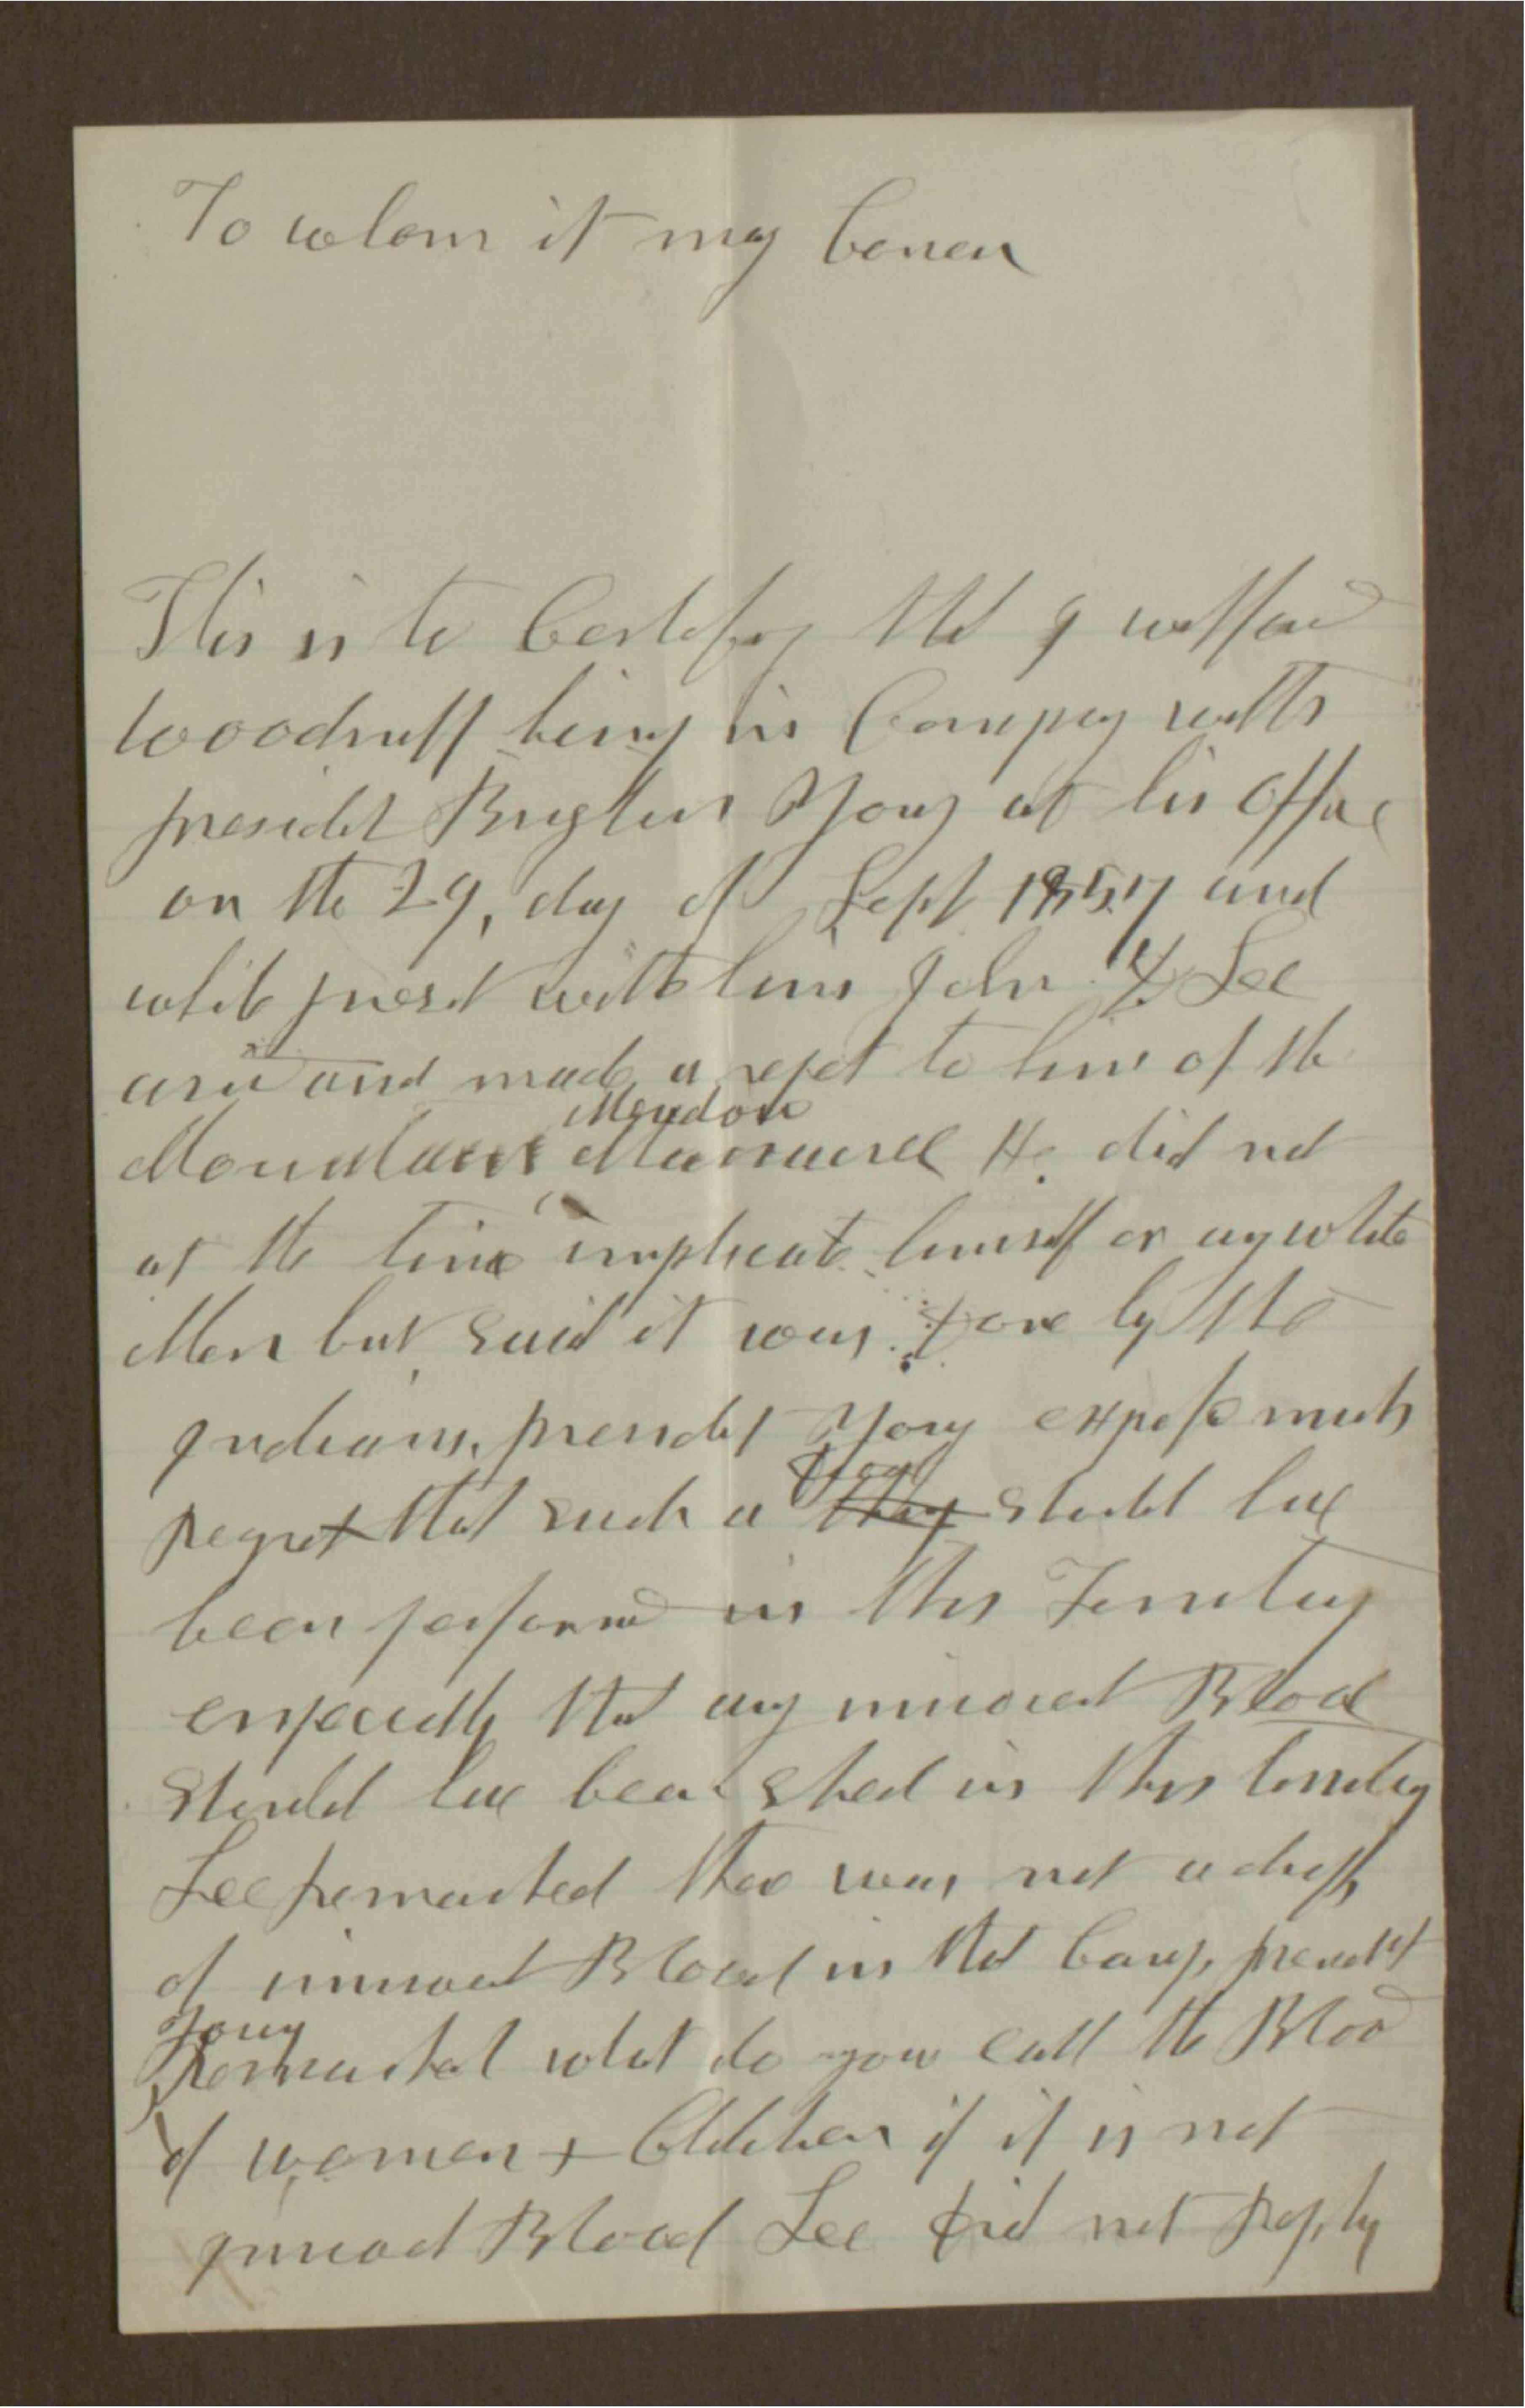 To whom it may Concern
This is to Certify that I Wilford
Woodruff being in Company with
president Brigham Young at his office
on the 29, day of Sept 1857 and
while present with him John D. Lee
arived and made a report to him of the
Meadow
Mountain Massacre He did not
at the time implicate himself or any white
Men but said it was done by the
Indians. president Young exprese much
regret that such a thing should have
been performed in this Territory
especially that any innocent Blood
should have been shed in this territory
Lee remarked there was not a drop
of innocent Blood in that Camp, president
Young
Remarked what do you call the Blood
of women & Children if it is not
innocent Blood Lee did not reply